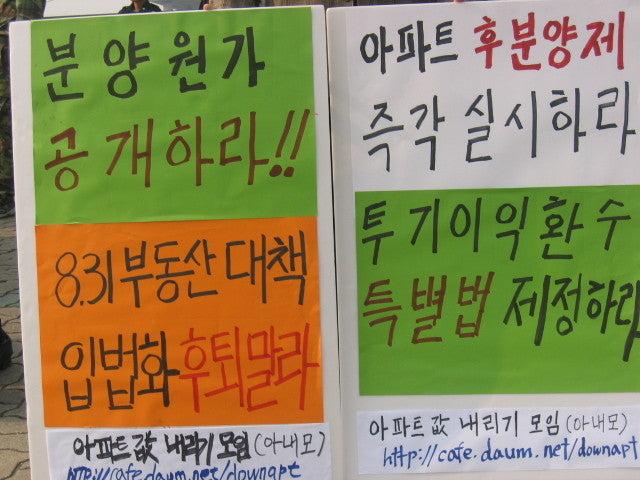 분양원가
공개하라!!
8.31부동산대책
입법화후퇴말라
아파트값 내리기모임(아내모)
http://cafe.daum.net/downapt
아파트 후분양제
즉각실시하라
투기이익환수
특별법 제정하라
아파트값 내리기 모임(아내모)
http://cafe.daum.net/downapt